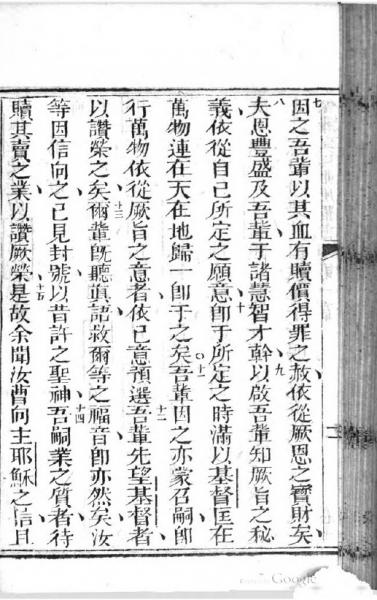 七
因之吾輩以其血有贖價得罪之赦依從厥恩之寶財矣
八
夫恩豐盛及吾輩于諸慧智才幹以啟吾輩知厥旨之秘
九
義依從自己所定之願意卽于所定之時滿以基督匡在
十
萬物連在天在地歸一卽于之矣吾輩因之亦蒙召嗣卽
十一
行萬物依從厥旨之意者依己意預選吾輩先望基督者
十二
以讚榮之矣爾輩旣聽眞語救爾等之福音卽亦然矣汝
十三
等因信向之已見封號以昔許之聖神吾嗣業之質者待
十四
贖其賣之業以讚厥榮是故余聞汝曹向主耶穌之信且
十五
二
Google